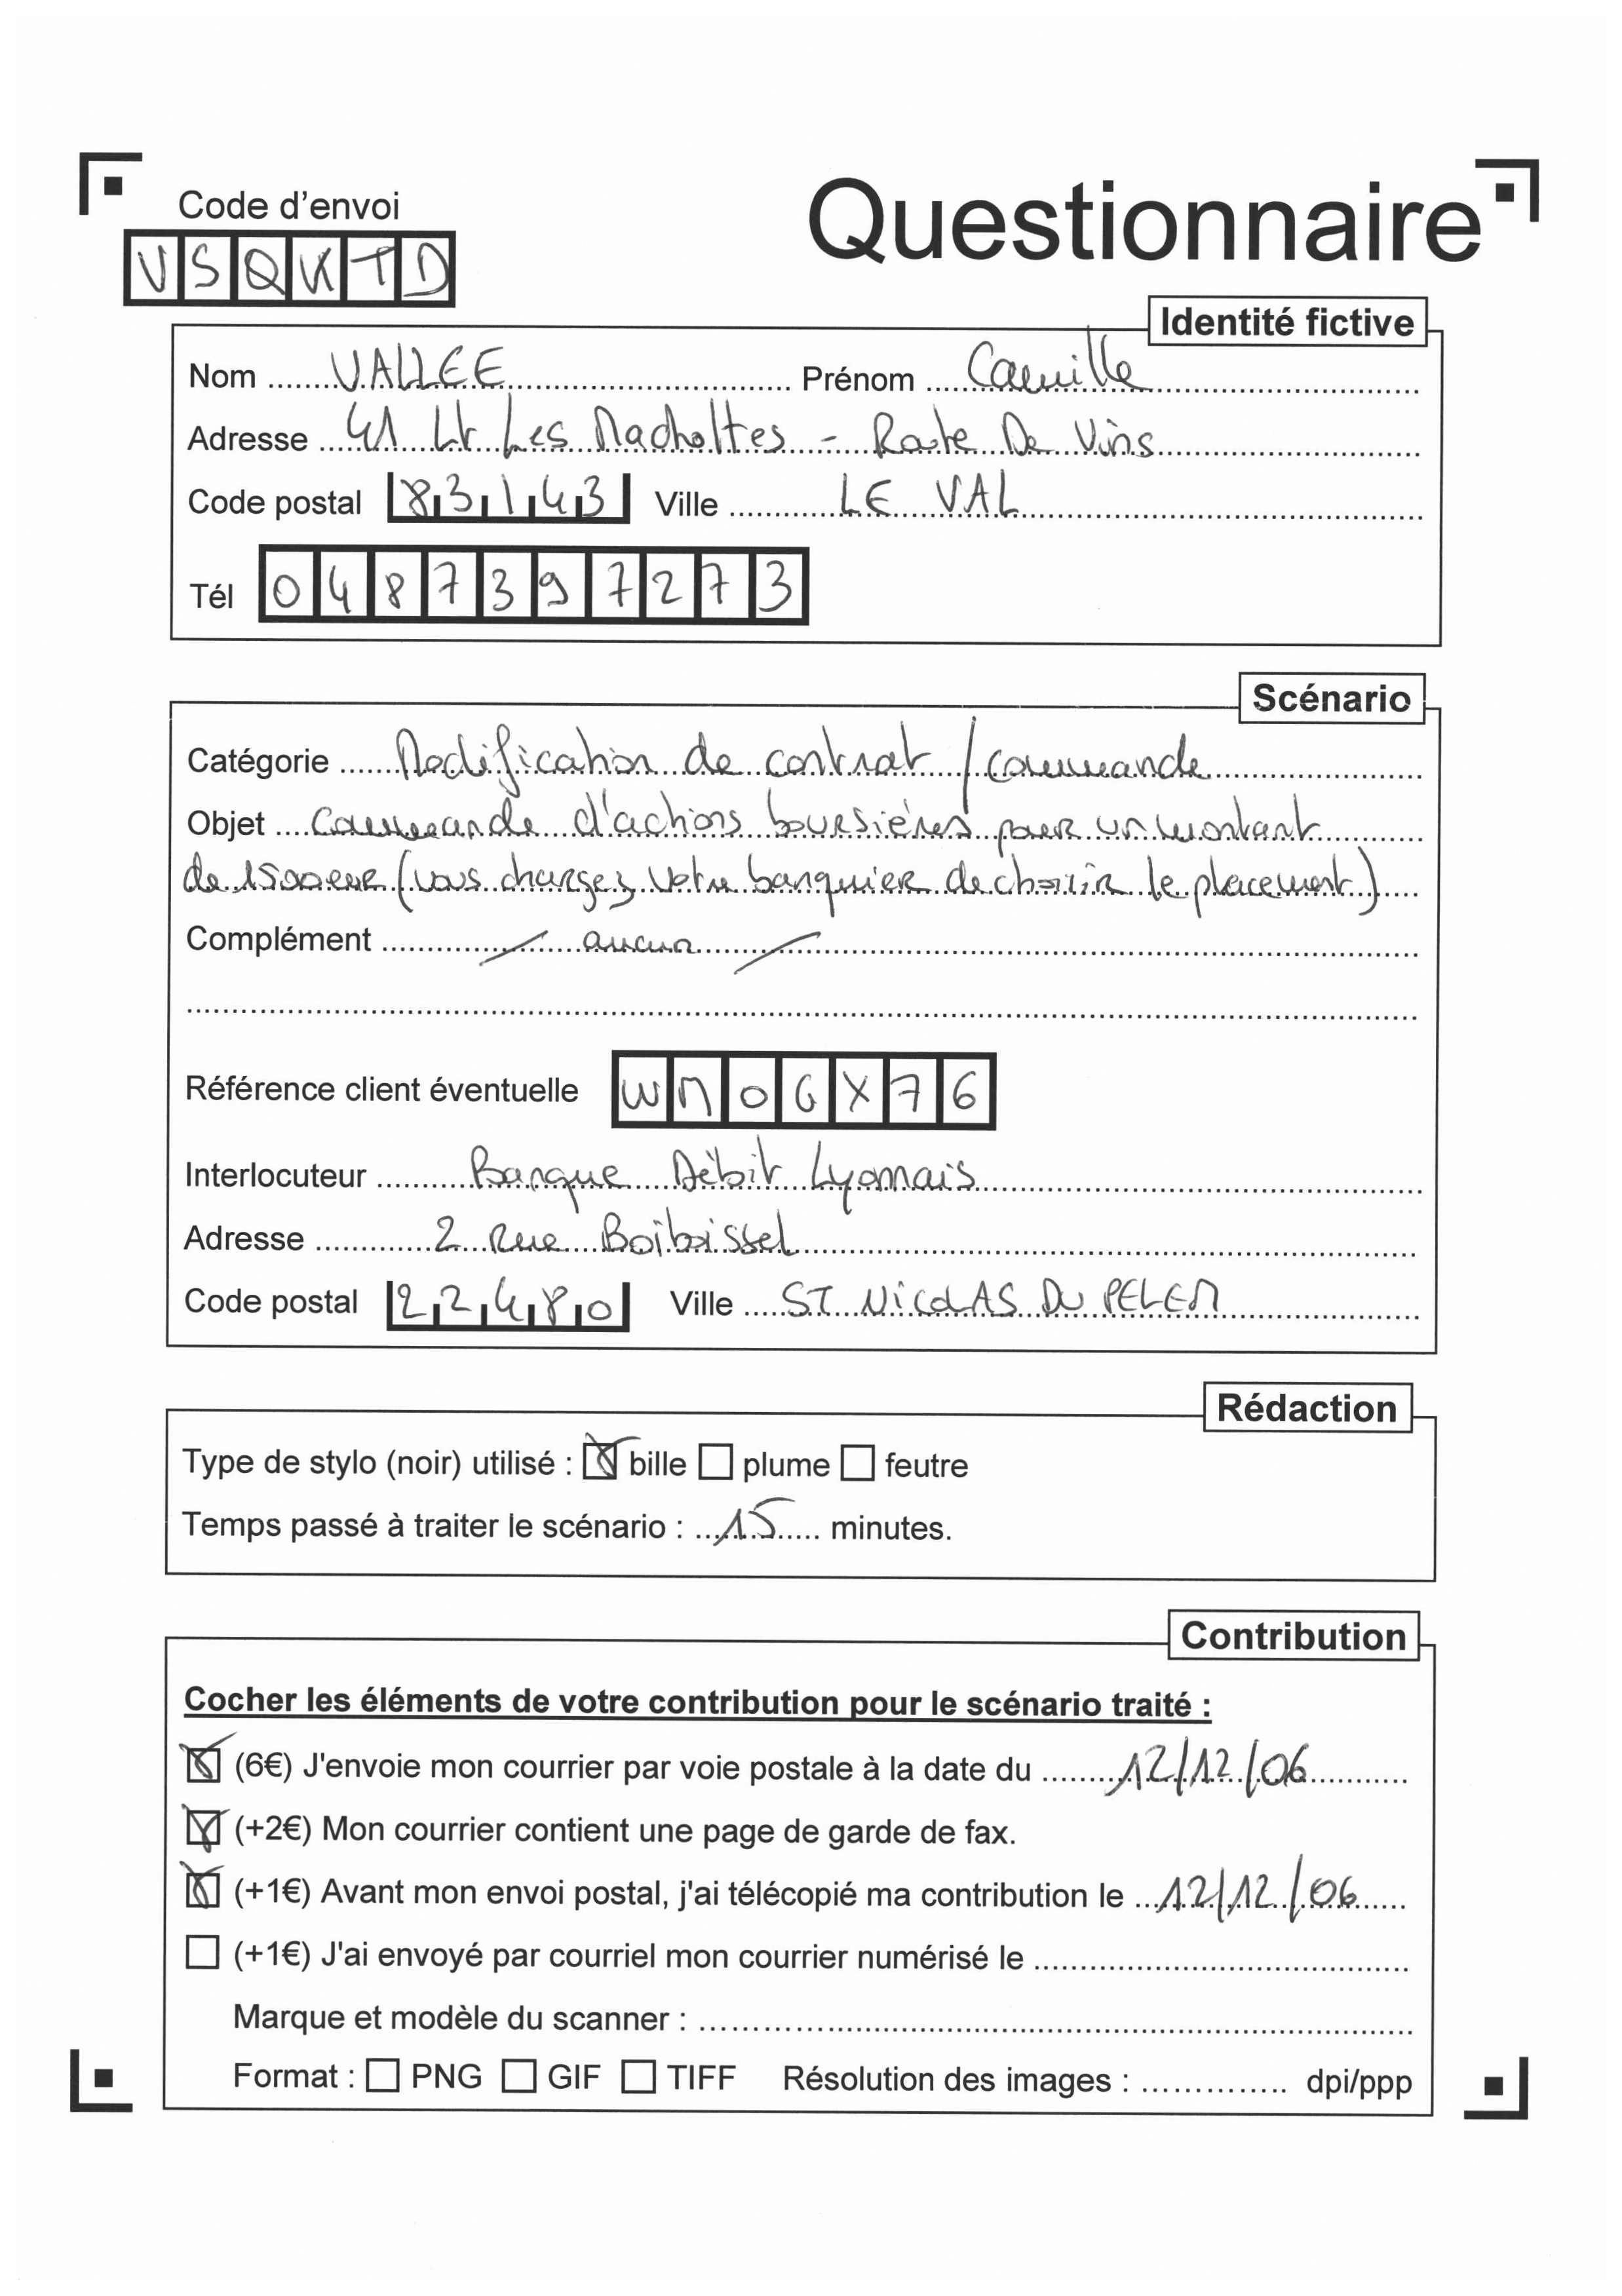 Code d'envoi
Questionnaire
VSQKTD
Identité fictive
Nom VALLEE Prénom Camille
Adresse 41 Lt Les Macholtes - Route De Vins
Code postal 83143 Ville LE VAL
Tél 0487397273
Scénario
Catégorie Modification de contrat / commande
Objet Commande d'actions boursières pour un montant
de 1500 eur (vous chargez votre banquier de choisir le placement)
Complément aucun
Référence client éventuelle WMOGX76
Interlocuteur Banque Débit Lyonnais
Adresse 2 Rue Boiboissel
Code postal 22480 Ville ST NICOLAS DU PELEM
Rédaction
Type de stylo (noir) utilisé : bille plume feutre
Temps passé à traiter le scénario : 15 minutes.
Contribution
Cocher les éléments de votre contribution pour le scénario traité :
(6€) J'envoie mon courrier par voie postale à la date du 12/12/06
(+2€) Mon courrier contient une page de garde de fax.
(+1€) Avant mon envoi postal, j'ai télécopié ma contribution le 12/12/06
(+1€) J'ai envoyé par courriel mon courrier numérisé le
Marque et modèle du scanner :
Format : PNG GIF TIFF Résolution des images : dpi/ppp